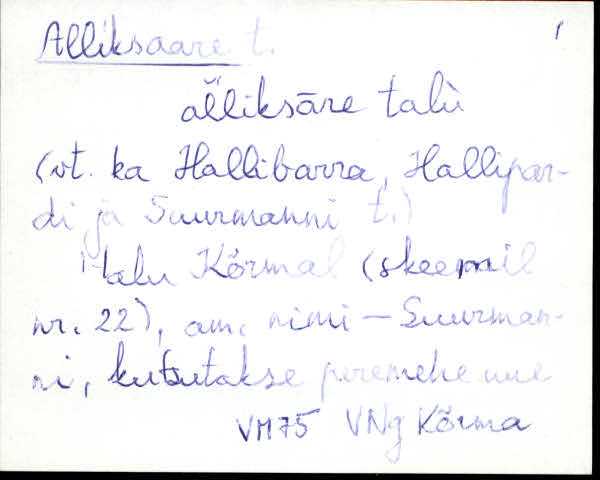 Alliksaare t. 1
al̆liksāre talù
(vt. ka Hallibarra, Hallipar-
di ja Suurmanni t.)
talu Kõrmal (skeemil
nr. 22), am. nimi — Suurman-
ni, kutsutakse peremehe
VM75 VNg Kõrma